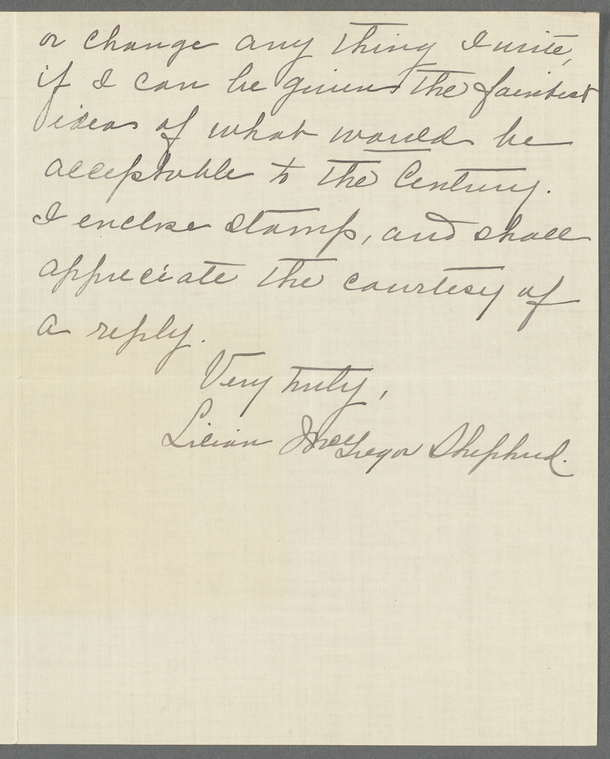 or change any thing I write,
if I can be given the faintest
ideas of what would be
acceptable to the Century.
I enclose stamp, and shall
appreciate the courtesy of
a reply.
Very truly,
Lilian McGregor Shepherd.